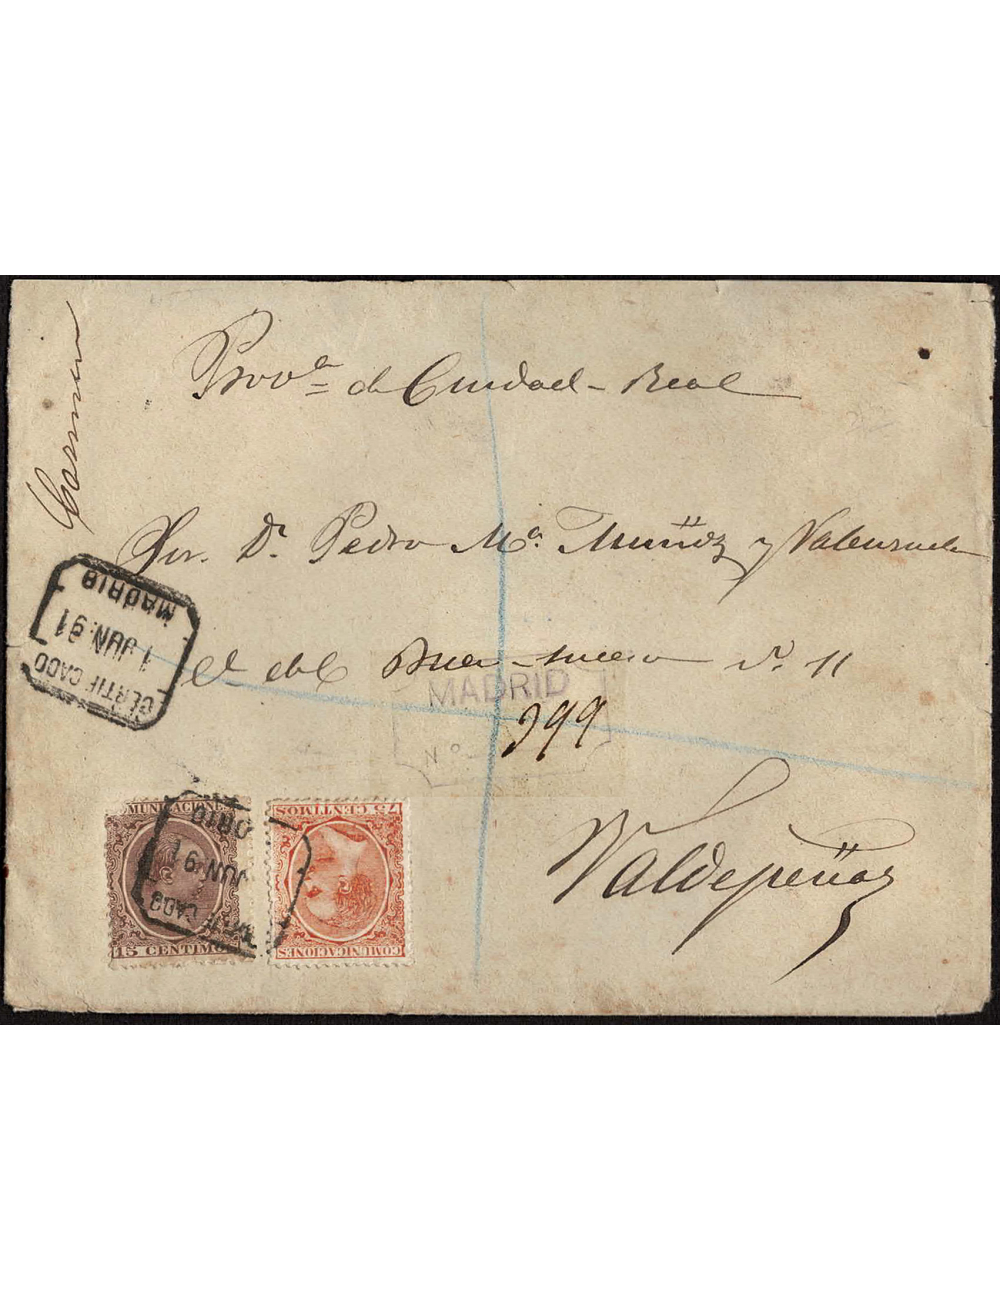 Carmen
Provª de Ciudad-Real
Sr. D. Pedro Mª. Muñoz y Valenzuela
C. del Buen-Suceso nº. 11
MADRID
Nº 199
Valdepeñas
CERTIFICADO
1 JUN. 91
MADRID
COMUNICACIONES
15 CENTIMOS
CADO
JUN 91
DRID
COMUNICACIONES
75 CENTIMOS